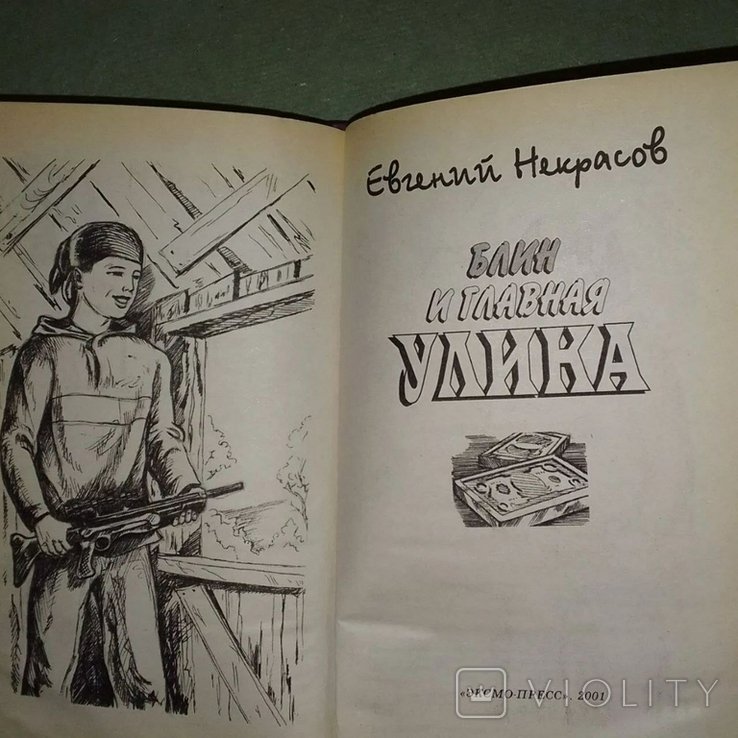 Евгений Некрасов
БЛИН
И ГЛАВНАЯ
УЛИКА
«ЭКСМО-ПРЕСС», 2001
VIOLITY